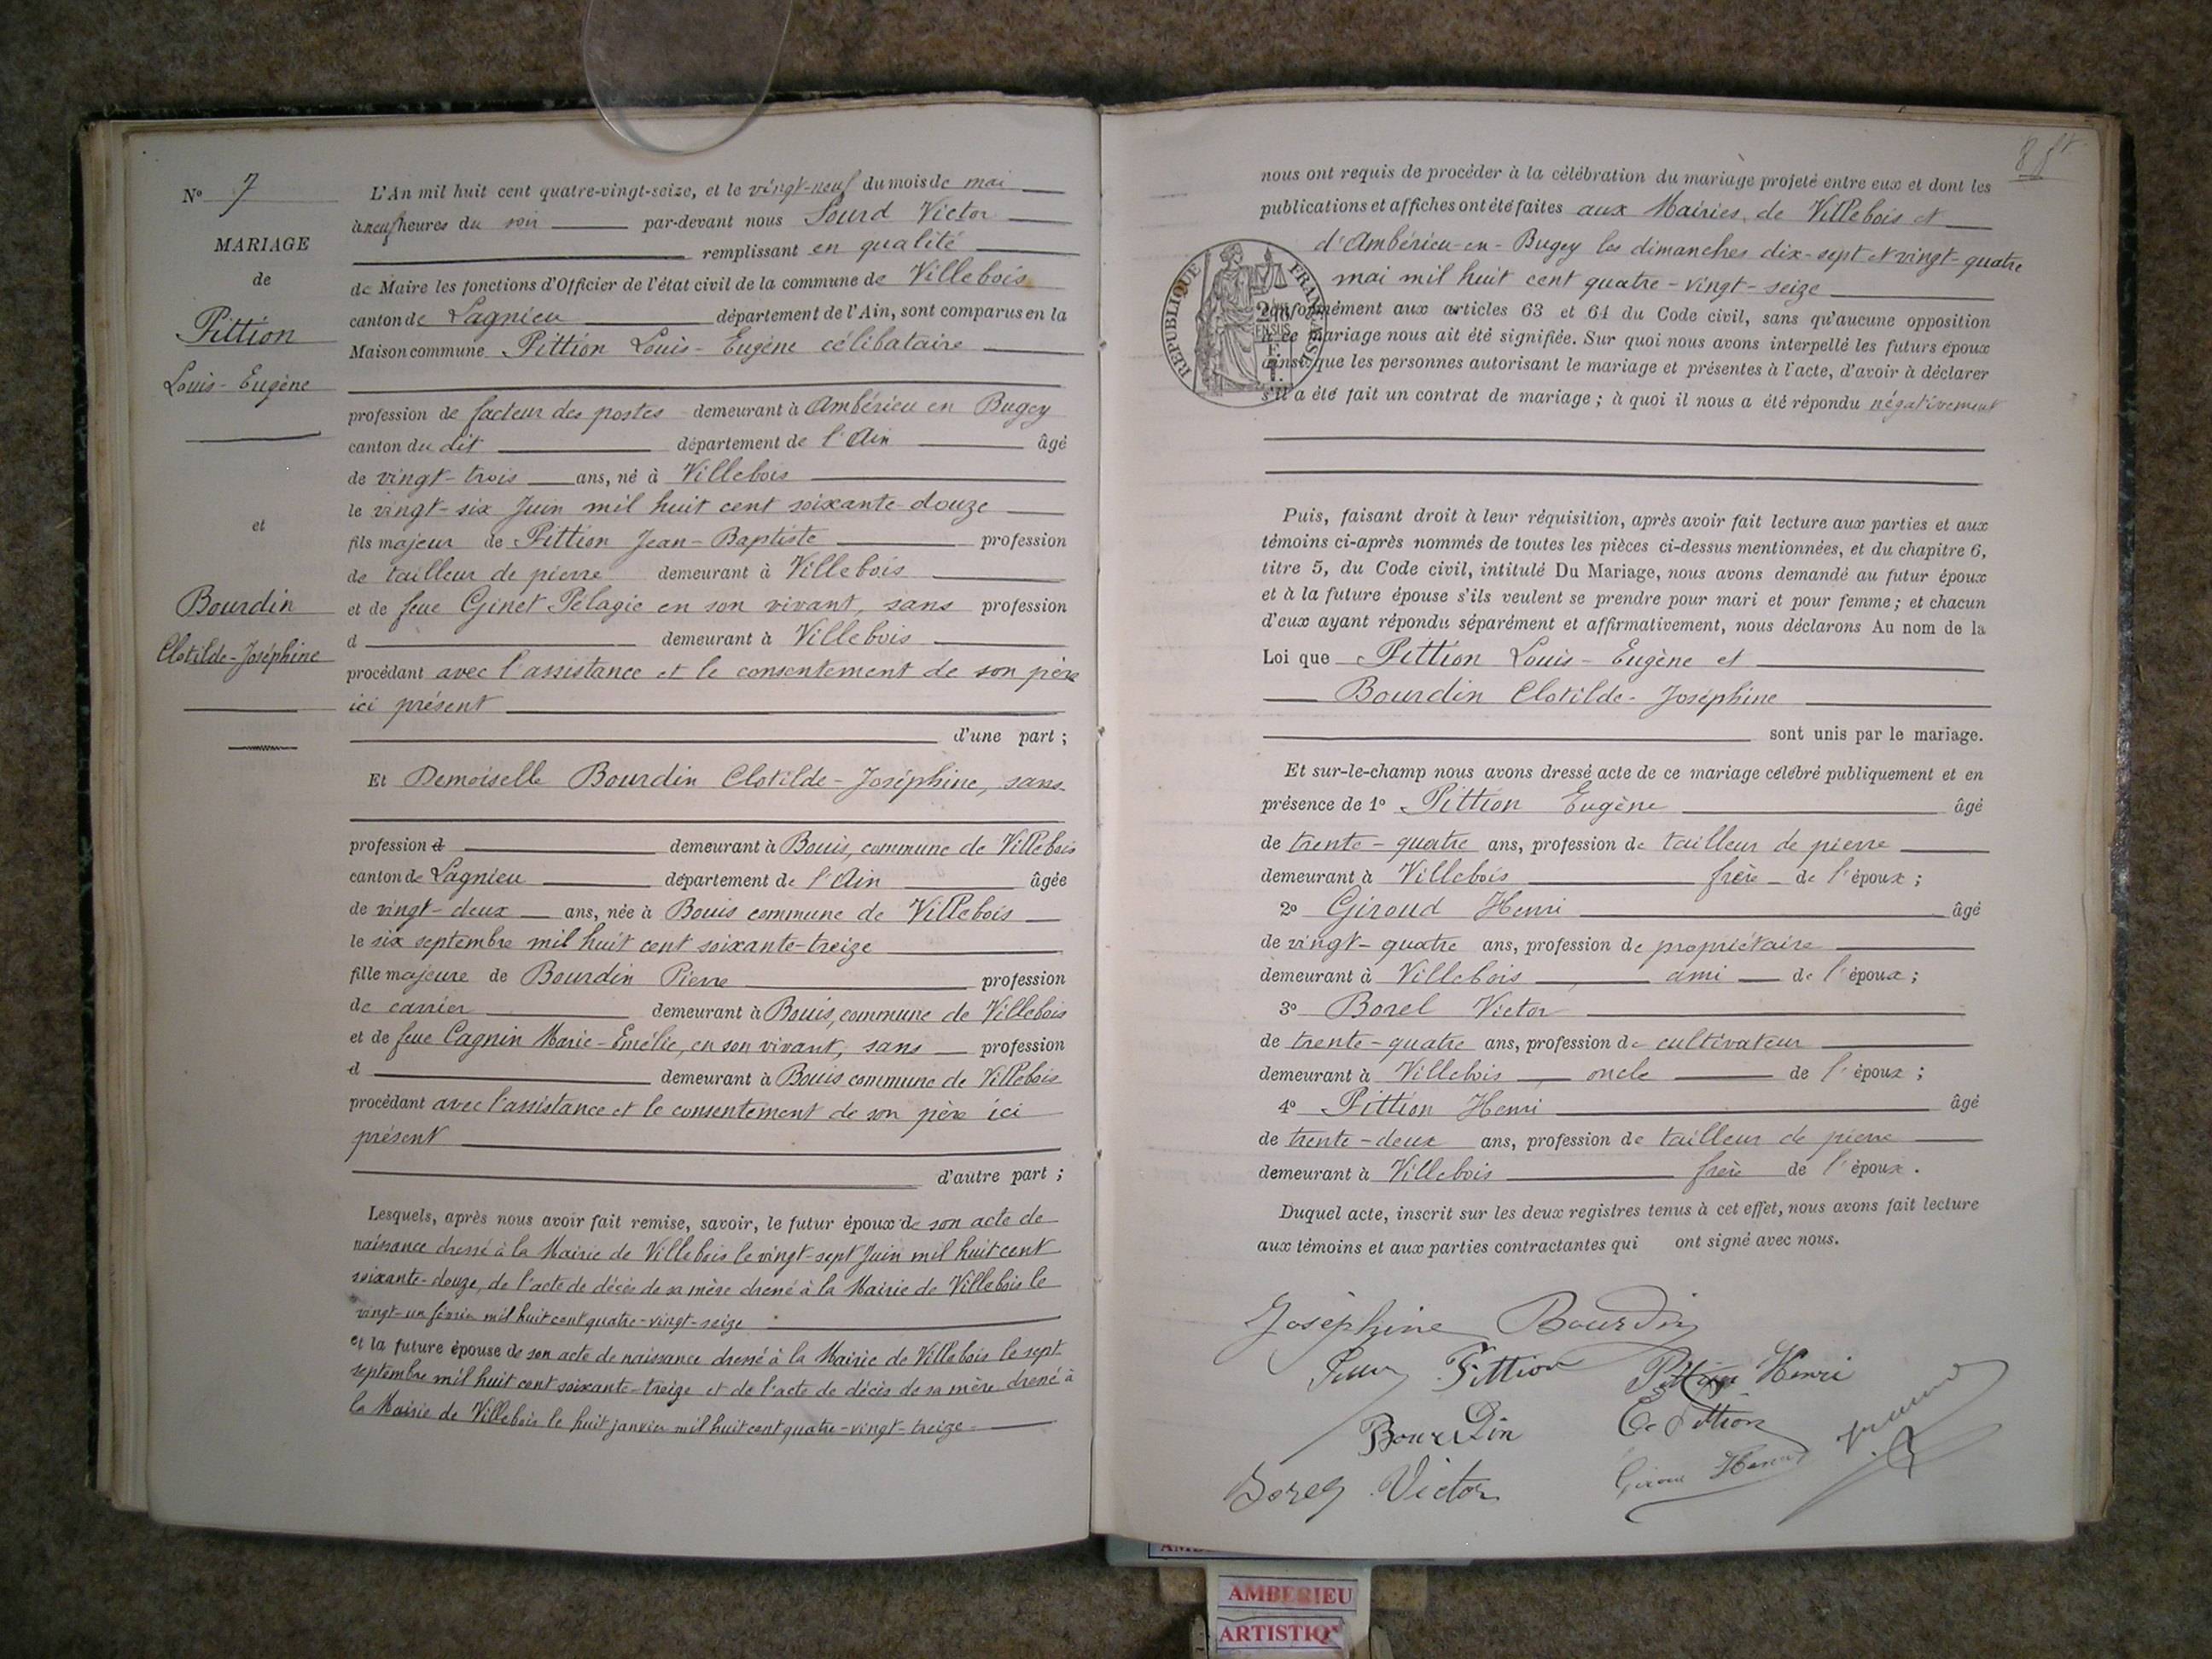 N° 7
MARIAGE
de
Pittion
Louis-Eugène
et
Bourdin
Clotilde-Joséphine
L'An mil huit cent quatre-vingt-seize, et le vingt-neuf du mois de mai
à neuf heures du soir par-devant nous Sourd Victor
remplissant en qualité
de Maire les fonctions d'Officier de l'état civil de la commune de Villebois
canton de Lagnieu département de l'Ain, sont comparus en la
Maison commune Pittion Louis-Eugène célibataire
profession de facteur des postes demeurant à Ambérieu en Bugey
canton du dit département de l'Ain âgé
de vingt-trois ans, né à Villebois
le vingt-six Juin mil huit cent soixante-douze
fils majeur de Pittion Jean-Baptiste profession
de tailleur de pierre demeurant à Villebois
et de feue Ginet Pélagie en son vivant, sans profession
d demeurant à Villebois
procédant avec l'assistance et le consentement de son père
ici présent
d'une part ;
Et Demoiselle Bourdin Clotilde-Joséphine, sans
profession d demeurant à Bouis, commune de Villebois
canton de Lagnieu département de l'Ain âgée
de vingt-deux ans, née à Bouis commune de Villebois
le six septembre mil huit cent soixante-treize
fille majeure de Bourdin Pierre profession
de carrier demeurant à Bouis, commune de Villebois
et de feue Cagnin Marie-Emélie, en son vivant, sans profession
d demeurant à Bouis commune de Villebois
procédant avec l'assistance et le consentement de son père ici
présent
d'autre part ;
Lesquels, après nous avoir fait remise, savoir, le futur époux de son acte de
naissance dressé à la Mairie de Villebois le vingt-sept Juin mil huit cent
soixante-douze, de l'acte de décès de sa mère dressé à la Mairie de Villebois le
vingt-un février mil huit cent quatre-vingt-seize
et la future épouse de son acte de naissance dressé à la Mairie de Villebois le sept
septembre mil huit cent soixante-treize et de l'acte de décès de sa mère dressé à
la Mairie de Villebois le huit janvier mil huit cent quatre-vingt-treize
nous ont requis de procéder à la célébration du mariage projeté entre eux et dont les
publications et affiches ont été faites aux Mairies, de Villebois et
d'Ambérieu-en-Bugey les dimanches dix-sept et vingt-quatre
mai mil huit cent quatre-vingt-seize
REPUBLIQUE FRANÇAISE
conformément aux articles 63 et 64 du Code civil, sans qu'aucune opposition
à ce mariage nous ait été signifiée. Sur quoi nous avons interpellé les futurs époux
ainsi que les personnes autorisant le mariage et présentes à l'acte, d'avoir à déclarer
s'il a été fait un contrat de mariage ; à quoi il nous a été répondu négativement
Puis, faisant droit à leur réquisition, après avoir fait lecture aux parties et aux
témoins ci-après nommés de toutes les pièces ci-dessus mentionnées, et du chapitre 6,
titre 5, du Code civil, intitulé Du Mariage, nous avons demandé au futur époux
et à la future épouse s'ils veulent se prendre pour mari et pour femme ; et chacun
d'eux ayant répondu séparément et affirmativement, nous déclarons Au nom de la
Loi que Pittion Louis-Eugène et
Bourdin Clotilde-Joséphine
sont unis par le mariage.
Et sur-le-champ nous avons dressé acte de ce mariage célébré publiquement et en
présence de 1° Pittion Eugène âgé
de trente-quatre ans, profession de tailleur de pierre
demeurant à Villebois frère de l'époux ;
2° Giroud Henri âgé
de vingt-quatre ans, profession de propriétaire
demeurant à Villebois ami de l'époux ;
3° Borel Victor
de trente-quatre ans, profession de cultivateur
demeurant à Villebois oncle de l'époux ;
4° Pittion Henri âgé
de trente-deux ans, profession de tailleur de pierre
demeurant à Villebois frère de l'époux.
Duquel acte, inscrit sur les deux registres tenus à cet effet, nous avons fait lecture
aux témoins et aux parties contractantes qui ont signé avec nous.
Joséphine Bourdin
Pittion Pittion Henri
Bourdin E Pittion
Borel Victor Giroud Henri
AMBERIEU
ARTISTIQ